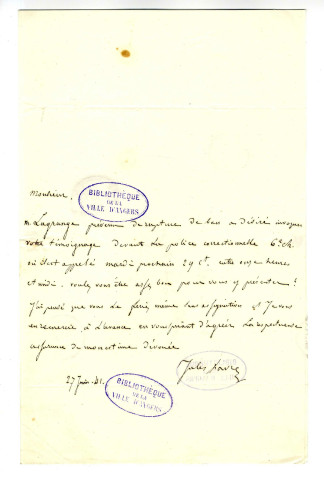 Monsieur,
BIBLIOTHÈQUE
DE LA
VILLE D'ANGERS
M. Lagrange prévenu de rupture de ban a désiré invoquer
votre témoignage devant la police correctionnelle 6e Ch.
où il est appelé mardi prochain 29 Ct. entre onze heures
et midi. voulez vous être assez bon pour vous y présenter ?
J'ai pensé que vous le feriez même sans assignation et je vous
en remercie à l'avance en vous priant d'agréer la respectueuse
assurance de mon estime dévouée.
Jules Favre
27 Juin 41.
BIBLIOTHÈQUE
DE LA
VILLE D'ANGERS